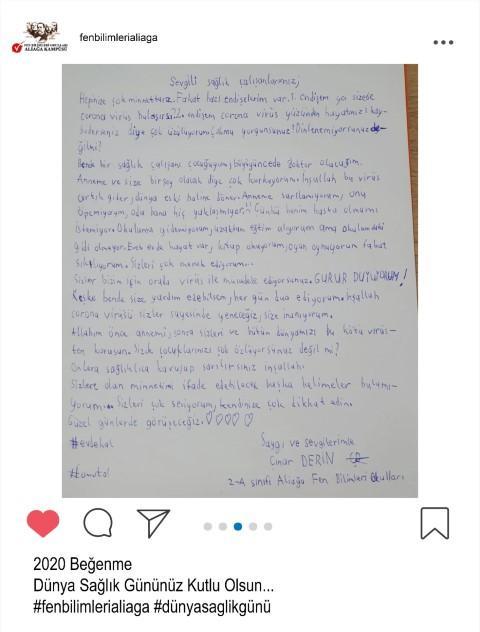 fenbilimlerialiaga
ALİAĞA KAMPÜSÜ
Sevgili sağlık çalışanlarımız,
Hepinize çok minnettarız. Fakat bazı endişelerim var. 1. endişem ya sizede
corona virüs bulaşırsa 2. endişem corona virüs yüzünden hayatınızı kay-
bederseniz diye çok üzülüyorum. Çokmu yorgunsunuz! Dinlenemiyorsunuz de-
ğilmi?
Bende bir sağlık çalışanı çocuğuyum, büyüyüncede doktor olucağım.
Anneme ve size birşey olacak diye çok korkuyorum. İnşullah bu virüs
artık gider, dünya eski haline döner. Anneme sarılamıyorum, onu
öpemiyorum, oda bana hiç yaklaşmıyor!! Çünkü benim hasta olmamı
istemiyor. Okuluma gidemiyorum, uzaktan eğitim alıyorum ama okulumdaki
gibi olmuyor. Evde evde hayat var, kitap okuyorum, oyun oynuyorum fakat
sıkılıyorum. Sizleri çok merak ediyorum...
Sizler bizim için orada virüs ile mücadele ediyorsunuz. GURUR DUYUYORUM!
Keşke bende size yardım edebilsem, her gün dua ediyorum. İnşallah
corona virüsü sizler sayesinde yeneceğiz, size inanıyorum.
Allahım önce annemi, sonra sizleri ve bütün dünyamızı bu kötü virüs-
ten korusun. Sizde çocuklarınızı çok özlüyorsunuz değil mi?
Onlara sağlıklıca kavuşup sarılırsınız inşallah.
Sizlere olan minnetimi ifade edebilecek başka kelimeler bulamı-
yorum. Sizleri çok seviyorum, kendinize çok dikkat edin.
Güzel günlerde görüşeceğiz. ♡♡♡♡
#evdekal
Saygı ve sevgilerimle
Çınar DERİN
#umutol
2-A sınıfı Aliağa Fen Bilimleri Okulları
2020 Beğenme
Dünya Sağlık Gününüz Kutlu Olsun...
#fenbilimlerialiaga #dünyasaglikgünü